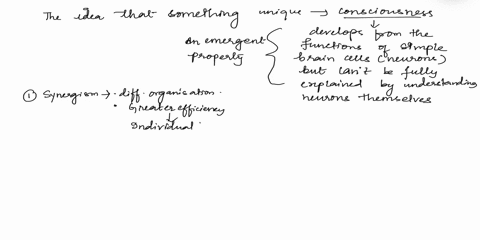 The idea that something unique → consciousness
An emergent property
develops from the
functions of simple
brain cells (neurons)
but can't be fully
explained by understanding
neurons themselves
① Synergism → · diff. organisation.
· Greater efficiency
↓
Individual